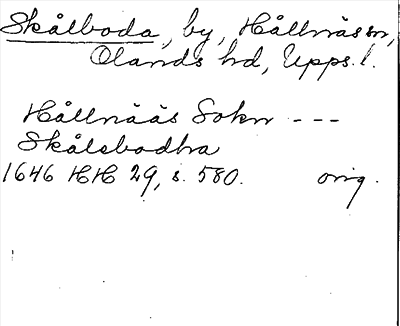 Skålboda, by, Hållnäs sn,
Olands hd, Upps. l.
Hållnääs Sokn ---
Skålsbodha
1646 HH 29, s. 580. orig.